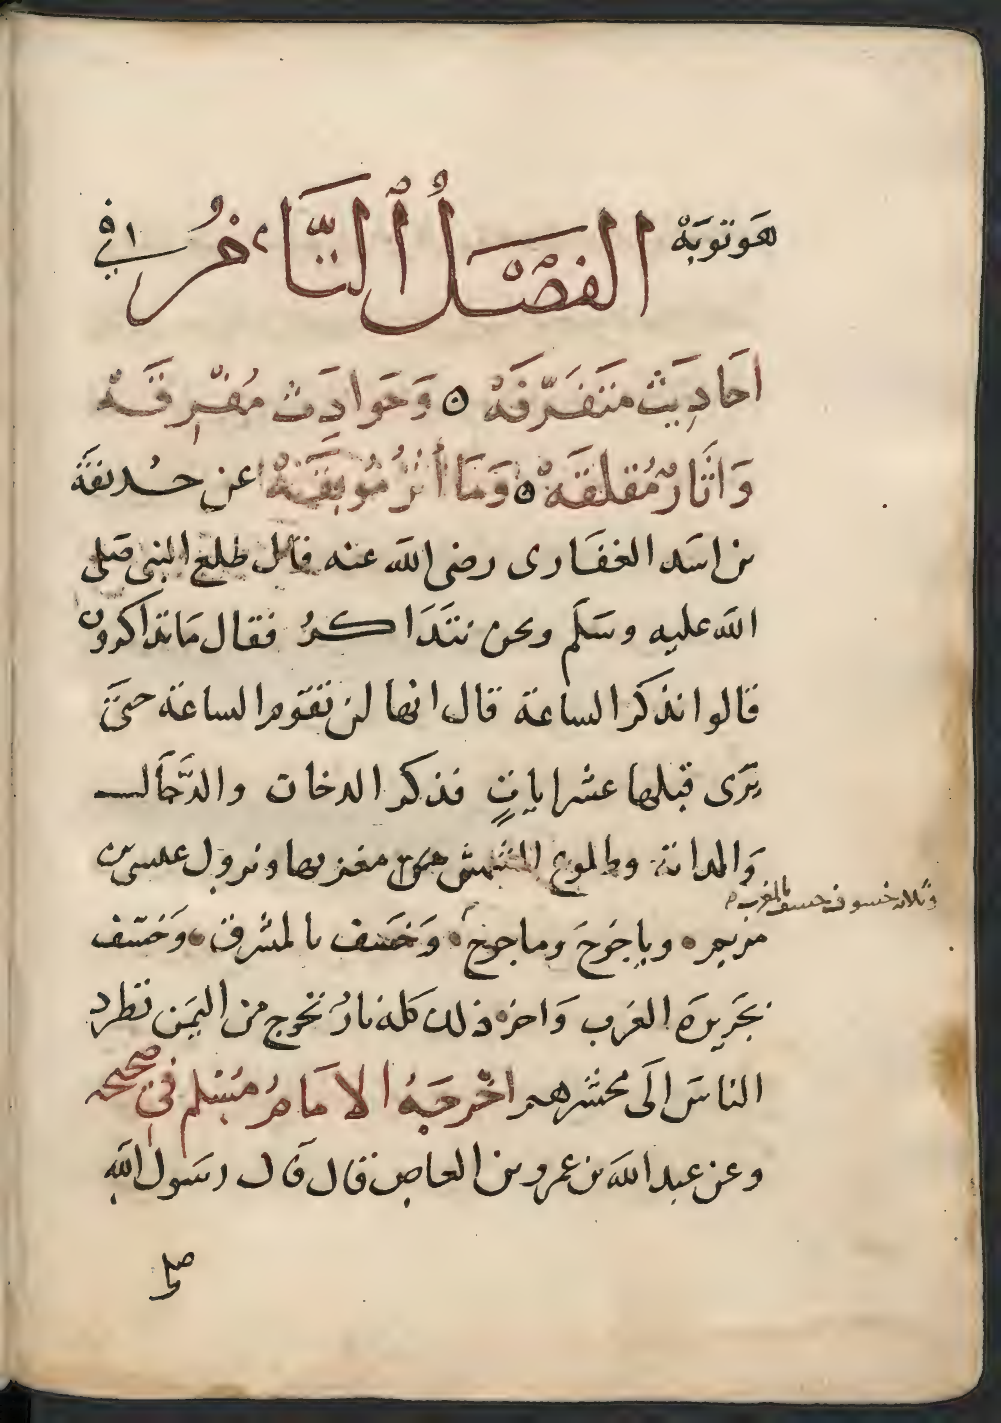 هوتوبة الفصل التاسع في
احاديث متفرقة ٥ وحوادث مفرقة
واثار مقلقة ٥ وما اثر موبقة عن حديفة
بن اسد الغفارى رضى الله عنه قال طلع النبى صلى
الله عليه وسلم ونحن نتداكر فقال ماتذاكرون
قالوا نذكر الساعة قال انها لن تقوم الساعة حتى
يرى قبلها عشر ايات فذكر الدخان والدجال
والدابة وطلوع الشمش من مغربها ونزول عيسى بن
وثلاث خسوف خسف بالمغرب
مريم وياجوج وماجوج وخسف بالمشرق وخسف
بجزيرة العرب واخر ذلك كله نار تخرج من اليمن تطرد
الناس الى محشرهم اخرجه الامام مسلم في صحيحه
وعن عبد الله بن عمرو بن العاص قال قال رسول الله